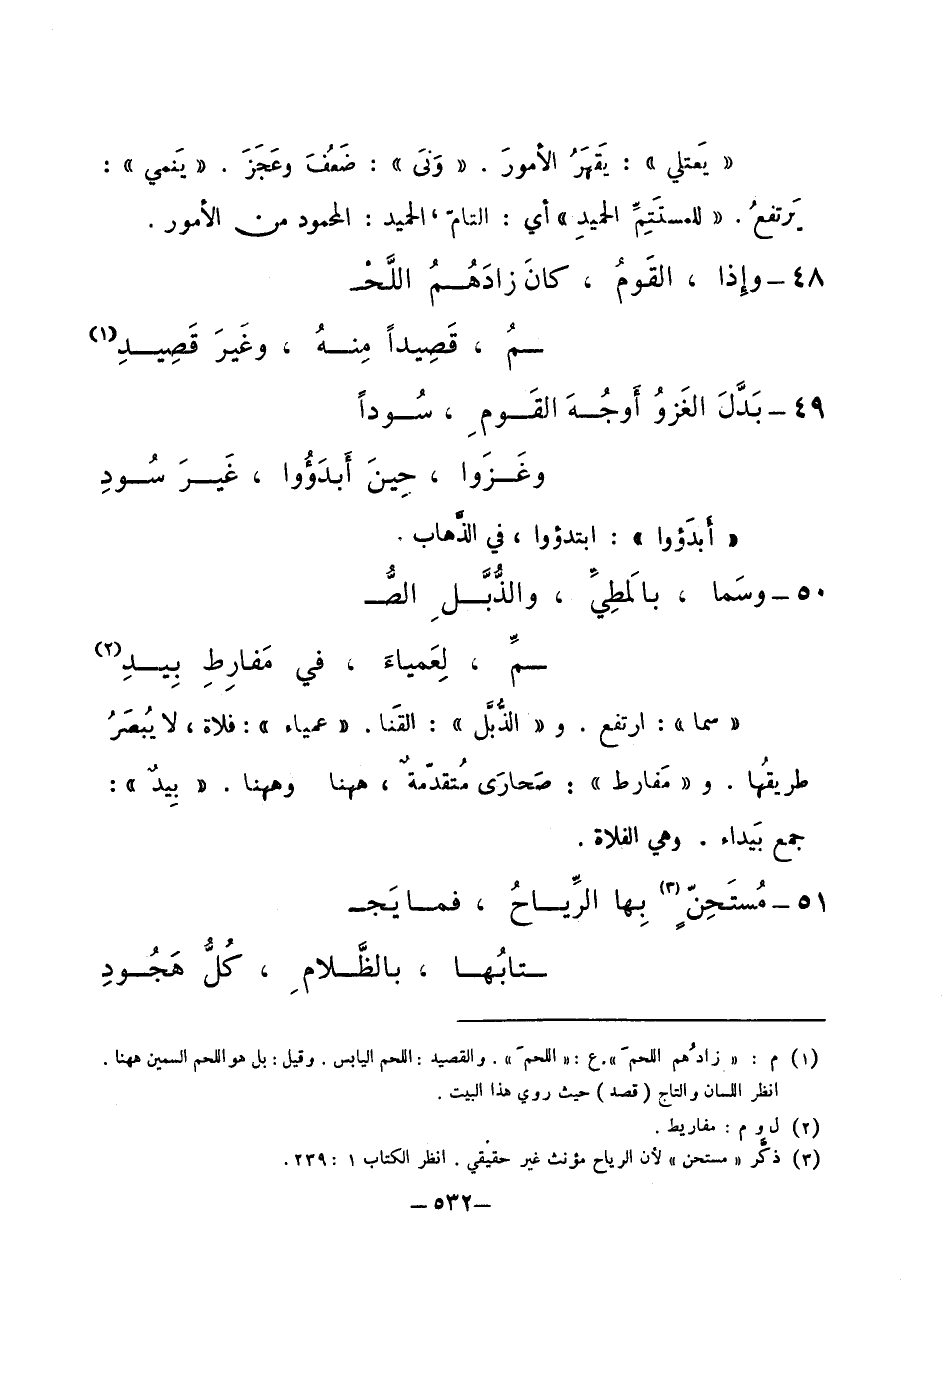 « يَعتلي » : يَقهَرُ الأمورَ . « وَنَى » : ضَعُفَ وعَجَزَ . « يَنمي » :
يَرتفعُ . « للمستَتِمِّ الحميدِ » أي : التامّ ، الحميد : المحمود من الأمور .
٤٨ – وإِذا ، القَومُ ، كانَ زادَهُـــمُ اللَّحْـ
ـــمُ ، قَصِيداً مِنـــهُ ، وغَيرَ قَصِيـــدِ(١)
٤٩ – بَدَّلَ الغَزوُ أَوجُـــهَ القَـــومِ ، سُـــوداً
وغَـــزَوا ، حِينَ أَبدَؤُوا ، غَيـــرَ سُـــودِ
« أَبدَؤوا » : ابتدؤوا ، في الذَّهاب .
٥٠ – وسَما ، بالمَطِيِّ ، والذُّبَّـــلِ الصُّـــ
ـــمِّ ، لِعَمياءَ ، في مَفارِطِ بِيـــدِ(٢)
« سما » : ارتفع . و « الذُّبَّل » : القَنا . « عمياء » : فلاة ، لا يُبصَرُ
طريقُها . و « مَفارط » : صَحارَى مُتقدّمةٌ ، ههنا وههنا . « بِيدٌ » :
جمع بَيداء . وهي الفلاة .
٥١ – مُستَحِنٍّ(٣) بِها الرِّيـــاحُ ، فمـــا يَجـــ
ـــتابُهـــا ، بالظَّـــلامِ ، كُلُّ هَجُـــودِ
(١) م : « زادُهم اللحمَ » . ع : « اللحمَ » . والقصيد : اللحم اليابس . وقيل : بل هو اللحم السمين ههنا .
انظر اللسان والتاج ( قصد ) حيث روي هذا البيت .
(٢) ل و م : مفاريط .
(٣) ذكَّر « مستحن » لأن الرياح مؤنث غير حقيقي . انظر الكتاب ١ : ٢٣٩ .
– ٥٣٢ –